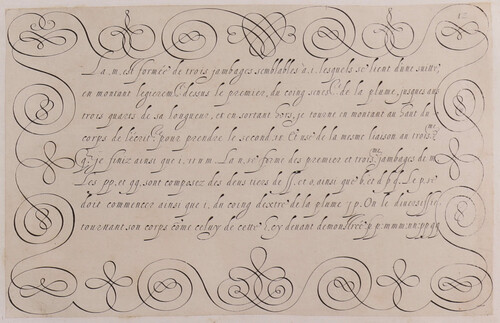 12
La .m. est formée de trois jambages semblables à .i. lesquels se lient d'une suitte,
en montant legierem.t dessus le premier, du coing senes.e de la plume, jusques aux
trois quarts de sa longueur, et en sortant hors, je tourne en montant au haut du
corps de l'écrit.e pour prendre le second, ir. Et use de la mesme liaison au trois.me
je finiz ainsi que i, ir m. La n, se forme des premier et trois.me jambages de m
Les pp, et qq, sont composez des deux tiers de ff, et o, ainsi que b, et d p q. Le p, se
doit commencer ainsi que i, du coing dextre de la plume p. On le diversiffie
tournant son corps côme celuy de cette cy devant demonstrée p p: mmm: nn: pp qq